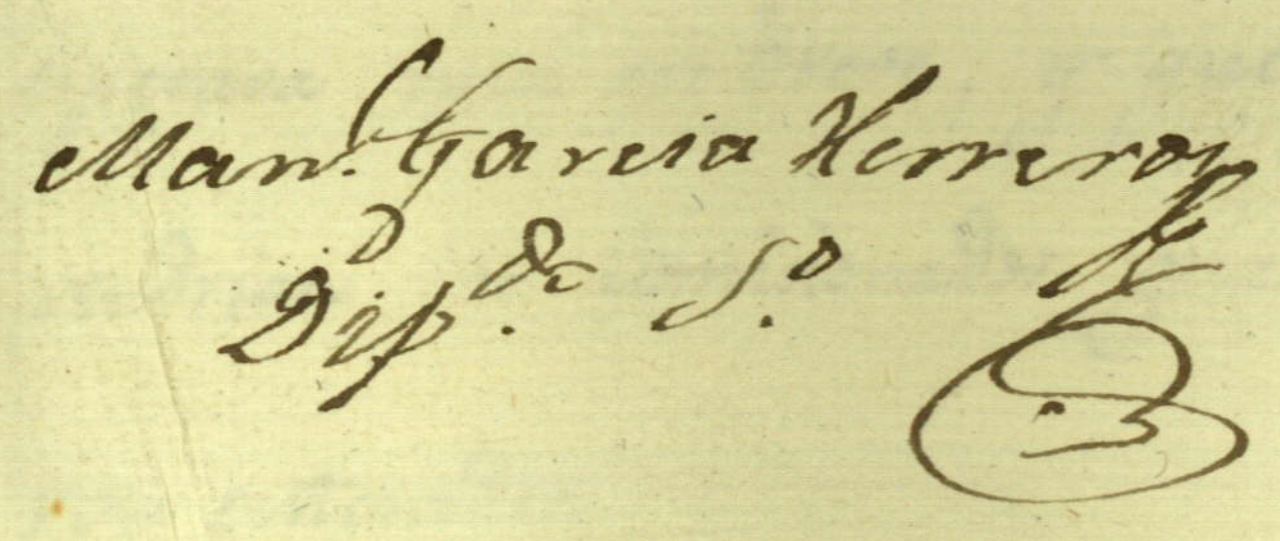 Man.l Garcia Herreros
Dip.do Sº